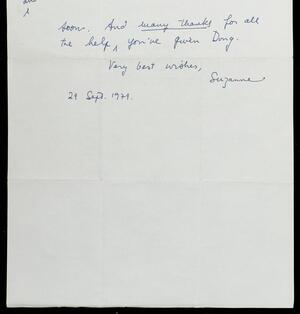 soon. And many thanks for all
the help, you've given Doug.
Very best wishes,
Suzanne
29 Sept. 1971.